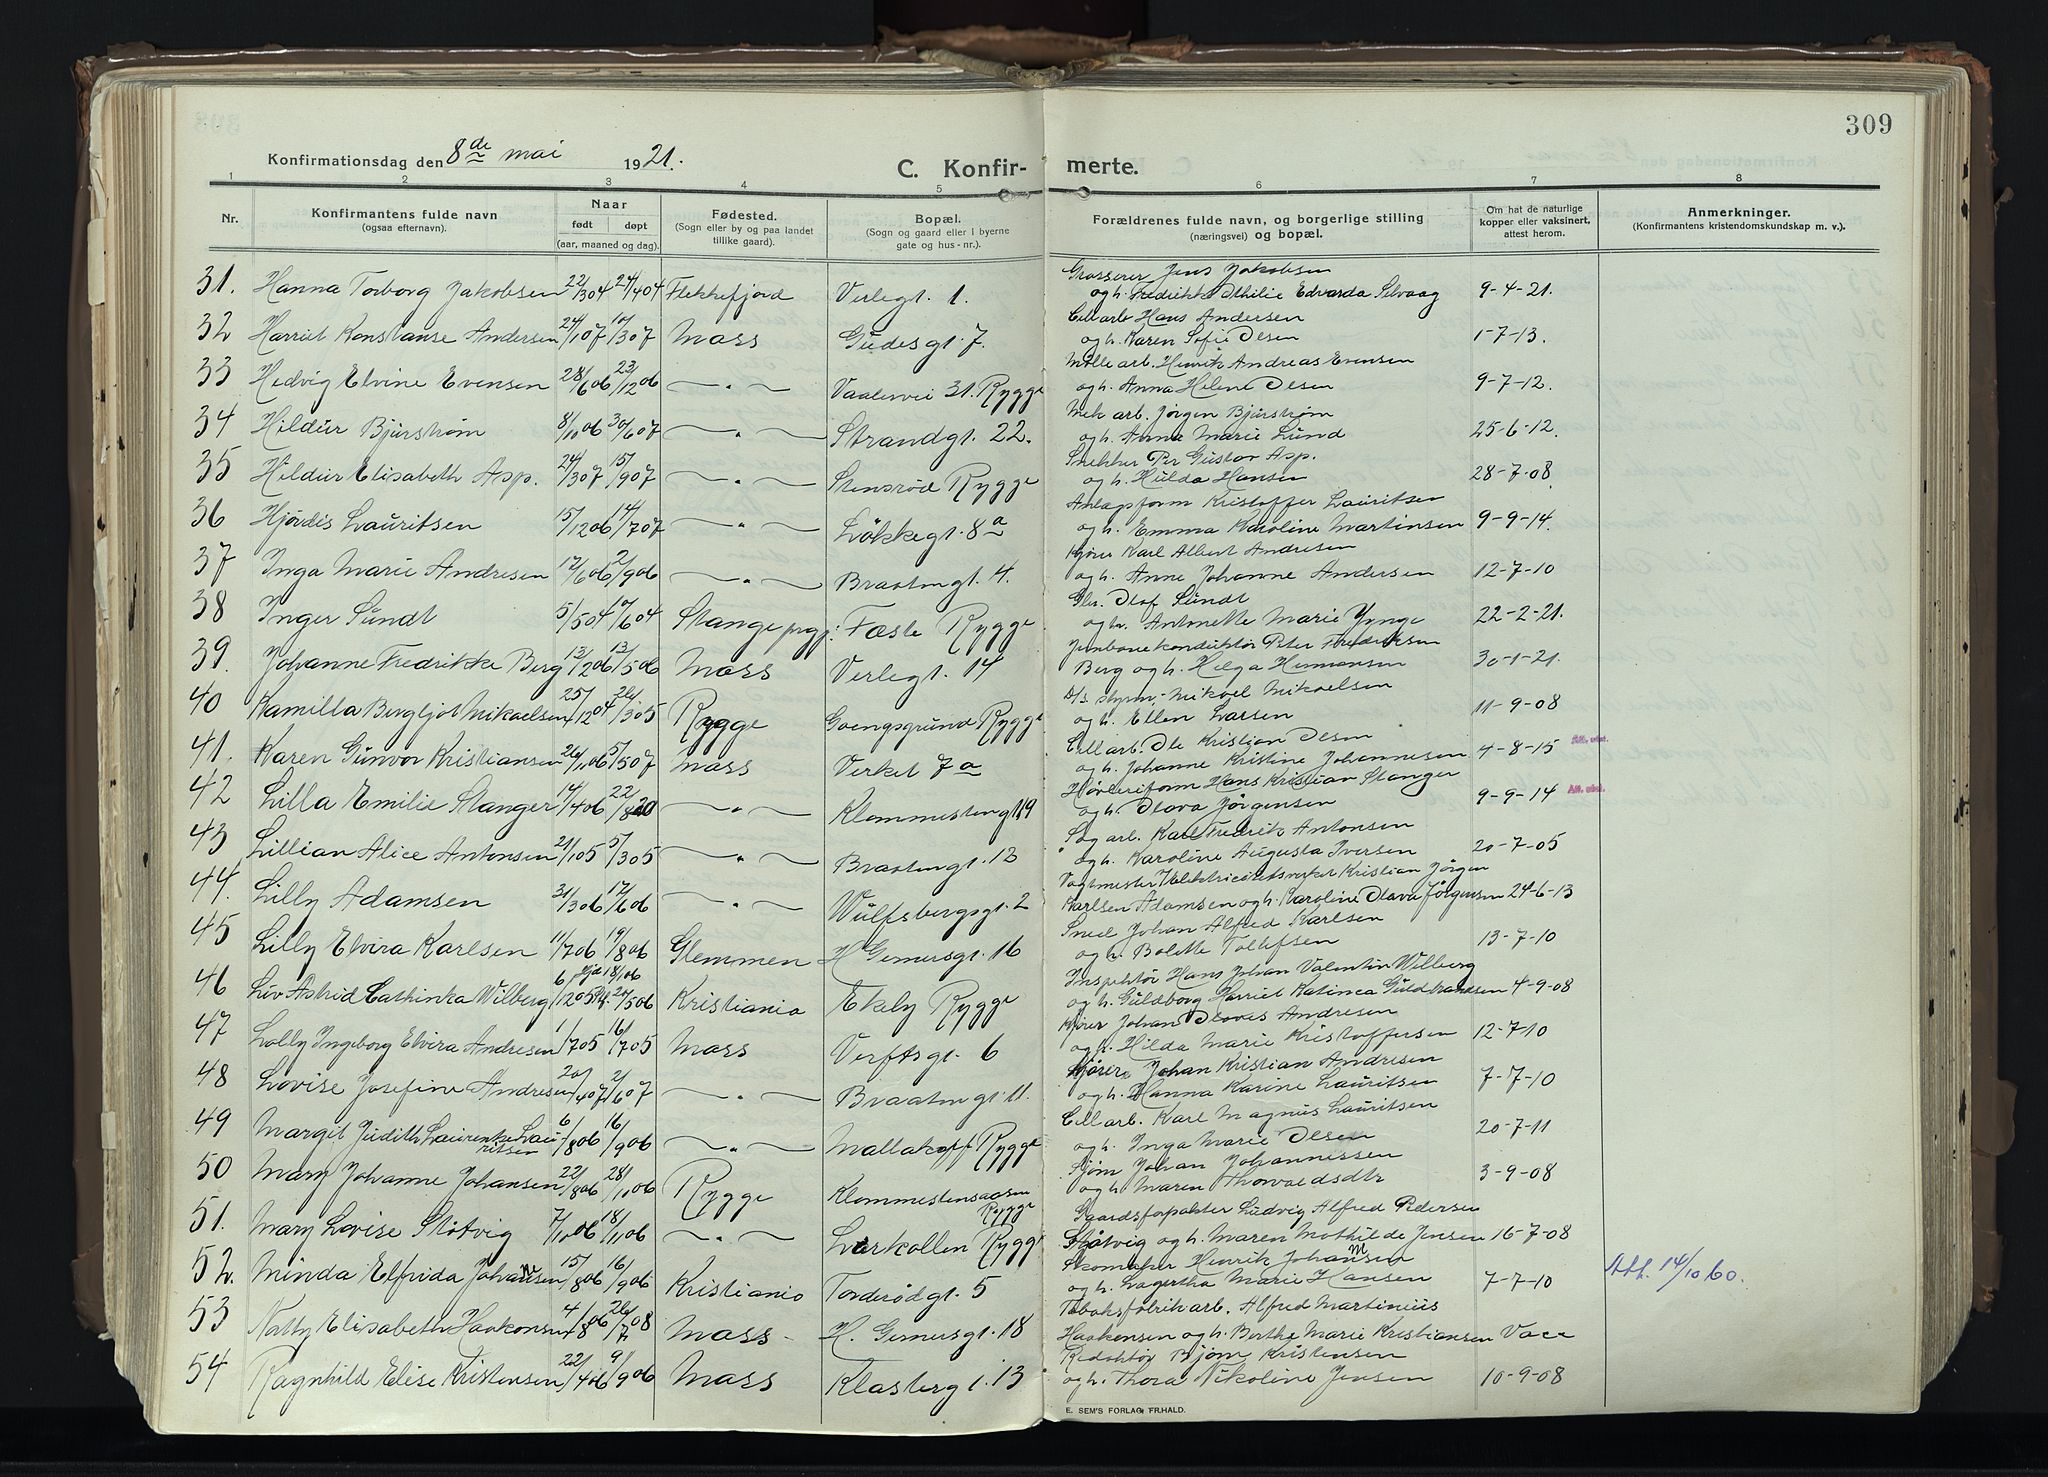 309
Konfirmationsdag den 8de mai 1921.
C. Konfirmerte.
1 2 3 4 5 6 7 8
Nr.
Konfirmantens fulde navn
(ogsaa efternavn).
Naar
født døpt
(aar, maaned og dag).
Fødested.
(Sogn eller by og paa landet
tillike gaard).
Bopæl.
(Sogn og gaard eller i byerne
gate og hus-nr.).
Forældrenes fulde navn, og borgerlige stilling
(næringsvei) og bopæl.
Om hat de naturlige
kopper eller vaksinert,
attest herom.
Anmerkninger.
(Konfirmantens kristendomskundskap m. v.).
31. Hanna Torborg Jakobsen 22/3 04 24/4 04 Flekkefjord Verlegt. 1. Grosserer Jens Jakobsen
og h. Fredrikke Othilie Edvarda Selvaag 9-4-21.
32 Harriet Konstanse Andersen 24/1 07 10/3 07 Moss Gudesgt. 7. Cell arb. Hans Andersen
og h. Karen Sofie Olsen 1-7-13.
33 Hedvig Elvine Evensen 28/6 06 23/12 06 — " — Vaalervei 31. Rygge Mølle arb. Henrik Andreas Evensen
og h. Anna Helene Olsen 9-7-12.
34 Hildur Bjurstrøm 8/10 06 30/6 07 — " — Strandgt. 22. Mek arb. Jørgen Bjurstrøm
og h. Anna Marie Lund 25-6-12.
35 Hildur Elisabeth Asp. 24/3 07 15/9 07 — " — Stensrød Rygge Snekker Per Gustav Asp.
og h. Hulda Hansen 28-7-08.
36 Hjørdis Lauritsen 15/12 06 14/7 07 — " — Løkkegt. 8a Anlægsform Kristoffer Lauritsen
og h. Emma Karoline Martinsen 9-9-14.
37 Inga Marie Andresen 12/6 06 2/9 06 — " — Braatengt. 4. Kjører Karl Albert Andresen
og h. Anne Johanne Andersen 12-7-10
38 Inger Sundt 5/5 04 10/6 04 Stange prgj. Fæste Rygge Gbr. Olaf Sundt
og h. Antonette Marie Ynge 22-2-21.
39. Johanne Fredrikke Berg 13/12 06 13/5 06 Moss Verlegt. 14 Jernbanekonduktør Peter Fredriksen
Berg og h. Helga Hermansen 30-1-21.
40 Kamilla Bergljot Mikaelsen 25/12 04 26/3 05 Rygge Goengsgrund Rygge D/s styrm. Mikael Mikaelsen
og h. Ellen Larsen 11-9-08
41. Karen Gunvor Kristiansen 26/11 06 5/5 07 Moss Verket 7a Cell arb. Ole Kristian Olsen
og h. Johanne Kristine Johannesen 4-8-15 Att. utst.
42 Lilla Emilie Stanger 14/4 06 22/8 20 — " — Klommestengt 19 Høvleriform Hans Kristian Stanger
og h. Olava Jørgensen 9-9-14 Att. utst.
43 Lillian Alice Antonsen 21/1 05 5/3 05 — " — Braatengt. 12 Sag arb. Karl Fredrik Antonsen
og h. Karoline Augusta Iversen 20-7-05
44. Lilly Adamsen 31/3 06 17/6 06 — " — Wulfsbergsgt. 2 Vagtmester v/ Elektricitetsverket Kristian Jørgen
Karlsen Adamsen og h. Karoline Olava Jørgensen 24-6-13
45 Lilly Elvira Karlsen 11/7 06 19/8 06 Glemmen H Gernersgt. 16 Smed Johan Alfred Karlsen
og h. Bolette Tollefsen 13-7-10
46 Liv Astrid Cathinka Wilberg 6/12 05 18/1 06 20/5 06 Kristiania Ekely Rygge Inspektør Hans Johan Valentin Wilberg
og h. Guldborg Harriet Katinca Guldbrandsen 4-9-08
47 Lolly Ingeborg Elvira Andresen 1/7 05 16/7 05 Moss Verftsgt. 6 Kjører Johan Olaves Andresen
og h. Hilda Marie Kristoffersen 12-7-10
48 Lovise Josefine Andresen 20/4 07 2/6 07 — " — Braatengt. 11. Kjører Johan Kristian Andresen
og h. Hanna Karine Lauritsen 7-7-10
49 Margit Judith Laurentze Lauritsen 6/8 06 16/9 06 — " — Mallakoff Rygge Cell arb. Karl Magnus Lauritsen
og h. Inga Marie Olsen 20-7-11
50 Mary Johanne Johansen 22/8 06 28/10 06 Rygge Klommestensaasen Rygge Sjøm Johan Johannissen
og h. Maren Thorvaldsdtr 3-9-08
51. Mary Lovise Støtvig 7/10 06 18/11 06 — " — Larkollen Rygge Gaardsforpakter Ludvig Alfred Pedersen
Støtvig og h. Maren Mathilde Jensen 16-7-08
52. Minda Elfrida Johansen 15/8 06 16/9 06 Kristiania Torderødgt. 5 Skomaker Henrik Johansen
og h. Lagertha Marie Hansen 7-7-10 Att. 14/10 60.
53 Natty Elisabeth Haakonsen 4/8 06 26/7 08 Moss - H. Gernersgt. 18 Tobaksfabrik arb. Alfred Martinius
Haakonsen og h. Berthe Marie Kristiansen Vacc
54 Ragnhild Elise Kristensen 22/4 06 9/9 06 Moss Klasbergt. 13 Redaktør Bjørn Kristensen
og h. Thora Nikoline Jensen 10-9-08
E. SEM'S FORLAG, FR.HALD.